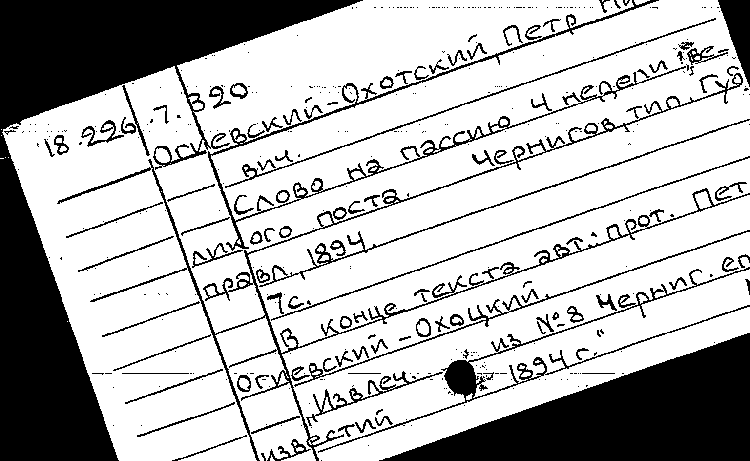 18.226.7.320
Огиевский-Охотский, Петр
вич.
Слово на пассию 4 недели Ве-
ликого поста. Чернигов, тип. Губ
правл., 1894.
7с.
В конце текста авт.: прот. Пет
Огиевский-Охоцкий.
"Извлеч. из №8 Черниг. еп
известий 1894 г."